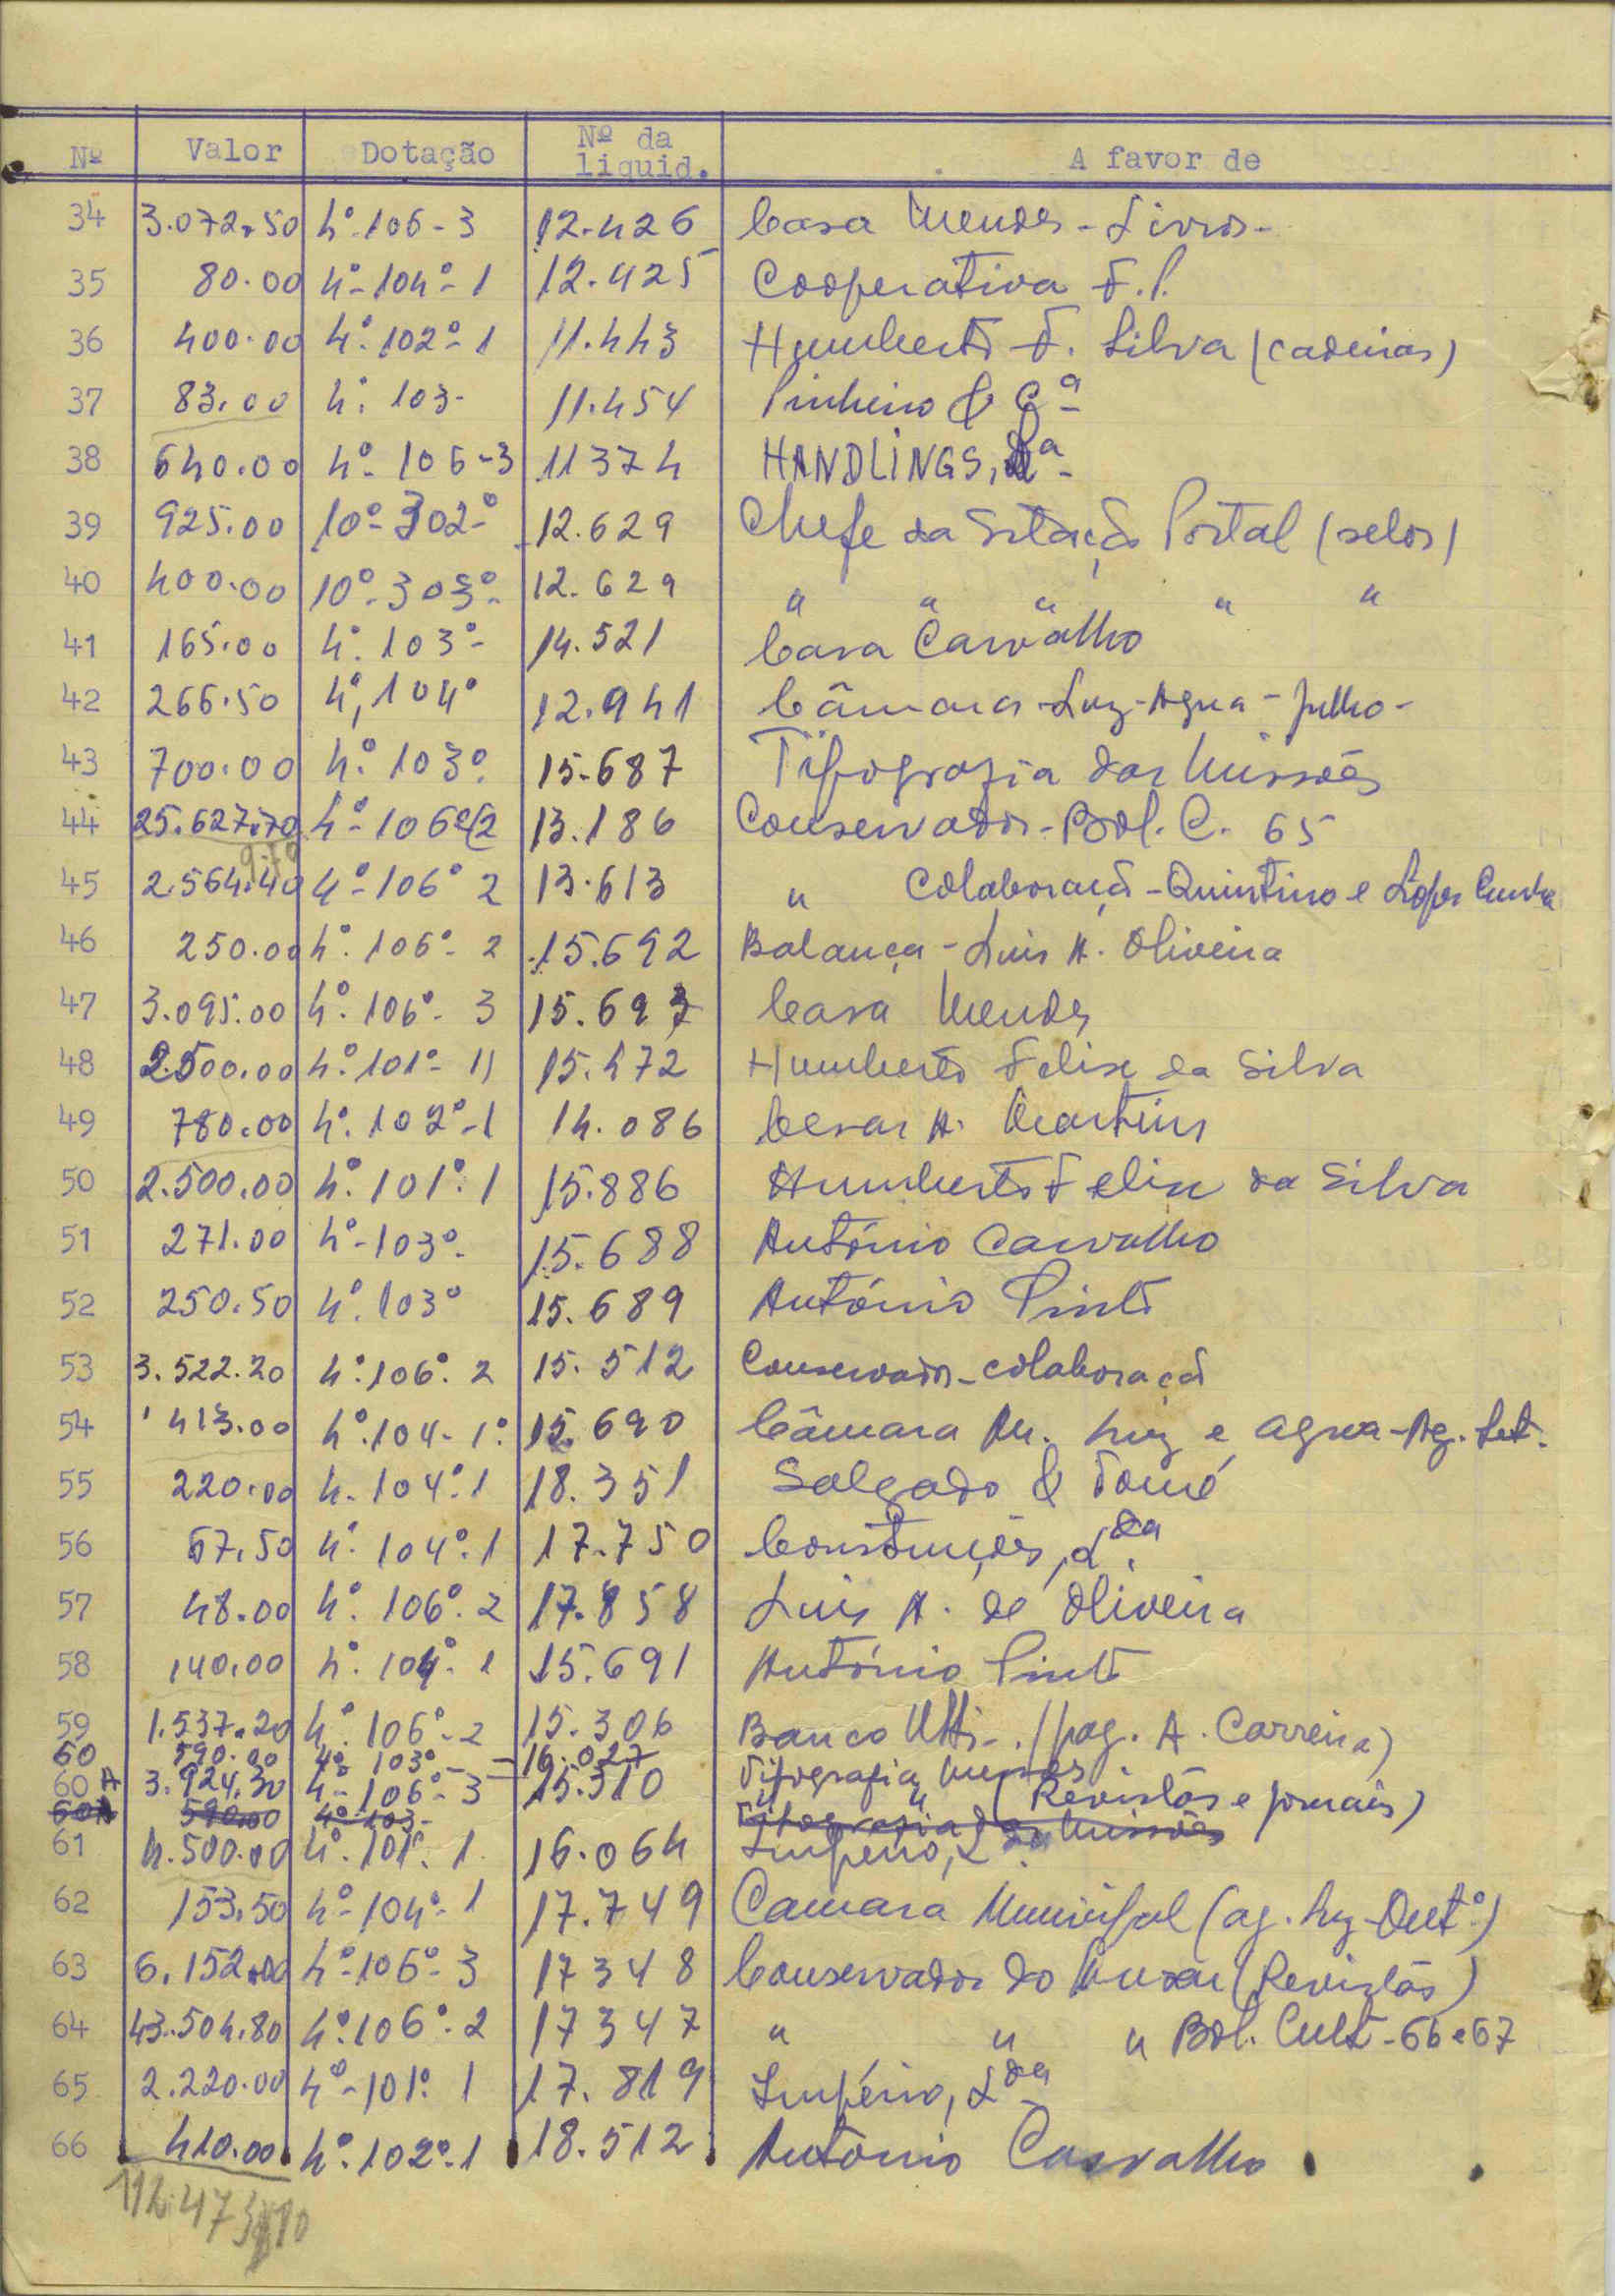 Nº Valor Dotação Nº da liquid. A favor de
34 3.072.50 4º-106-3 12.426 Casa Mendes - Livros-
35 80.00 4º-104º-1 12.425 Cooperativa F.P.
36 400.00 4º-102º-1 11.443 Humberto F. Silva (cadeiras)
37 83.00 4º. 103- 11.454 Pinheiro & Cª
38 640.00 4º- 106-3 11374 HANDLINGS, Lª-
39 925.00 10º-302-º 12.629 Chefe da Estação Postal (selos)
40 400.00 10º-303º- 12.629 " " " " "
41 165.00 4º. 103º- 14.521 Casa Carvalho
42 266.50 4º, 104º 12.941 Câmara-Luz-Agua-Julho-
43 700.00 4.º 103º. 15.687 Tipografia das Missões
44 25.627.70 4º-106º/2 13.186 Conservador-Bol. C. 65
45 2.564.40 4º-106º 2 13.613 " Colaboração-Quintino e Lopes Cunha
46 250.00 4º. 106º- 2 15.692 Balança-Luis A. Oliveira
47 3.095.00 4º. 106º- 3 15.693 Casa Mendes
48 2.500.00 4º.101º- 1) 15.472 Humberto Felix da Silva
49 780.00 4º. 102º-1 14.086 Cesar A. Martins
50 2.500.00 4º. 101º. 1 15.886 Humberto Felix da Silva
51 271.00 4º-103º- 15.688 António Carvalho
52 250.50 4º. 103º 15.689 António Pinto
53 3.522.20 4º.106º. 2 15.512 Conservador-colaboração
54 413.00 4º.104-1º. 15.690 Câmara M. luz e agua-Ag. Set.
55 220.00 4-104º.1 18.351 Salgado & Tomé
56 67.50 4º. 104º.1 17.750 Construções, Lda.
57 48.00 4º. 106º. 2 17.858 Luis A. de Oliveira
58 140.00 4º. 104º. 1 15.691 António Pinto
59 1.537.20 4º. 106º-2 15.306 Banco Utt.-. (pag. A. Correia)
60 590.00 4º 103º-- 16.027 Tipografia Missões
60A 3.924.30 4º-106º-3 15.310 " " (Revistas e jornais)
60A 590.00 4º-103- Tipografia das Missões
61 4.500.00 4º.101º. 1 16.064 Império, Lda.
62 153.50 4º-104º-1 17.749 Camara Municipal (ag. luz-Outº.)
63 6.152.00 4º-106º-3 17348 Conservador do Museu (Revistas)
64 43.504.80 4º.106º.2 17347 " " " Bol. Cult-66 e 67
65 2.220.00 4º-101º. 1 17.819 Império, Lda
66 410.00 4º.102º.1 18.512 António Carvalho